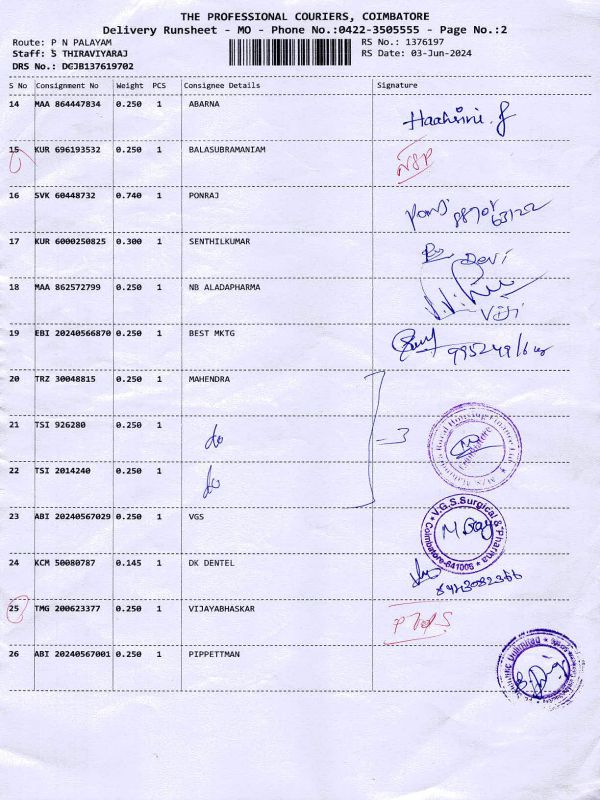 THE PROFESSIONAL COURIERS, COIMBATORE
Delivery Runsheet - MO - Phone No.:0422-3505555 - Page No.:2
Route: P N PALAYAM RS No.: 1376197
Staff: 5 THIRAVIYARAJ RS Date: 03-Jun-2024
DRS No.: DCJB137619702
S No Consignment No Weight PCS Consignee Details Signature
14 MAA 864447834 0.250 1 ABARNA
15 KUR 696193532 0.250 1 BALASUBRAMANIAM NSP
16 SVK 60448732 0.740 1 PONRAJ
17 KUR 6000250825 0.300 1 SENTHILKUMAR Devi
18 MAA 862572799 0.250 1 NB ALADAPHARMA Viji
19 EBI 20240566870 0.250 1 BEST MKTG
20 TRZ 30048815 0.250 1 MAHENDRA
21 TSI 926280 0.250 1 do - 3
22 TSI 2014240 0.250 1 do
23 ABI 20240567029 0.250 1 VGS V.G.S.Surgical & Pharma Coimbatore-641006
24 KCM 50080787 0.145 1 DK DENTEL
25 TMG 200623377 0.250 1 VIJAYABHASKAR
26 ABI 20240567001 0.250 1 PIPPETTMAN